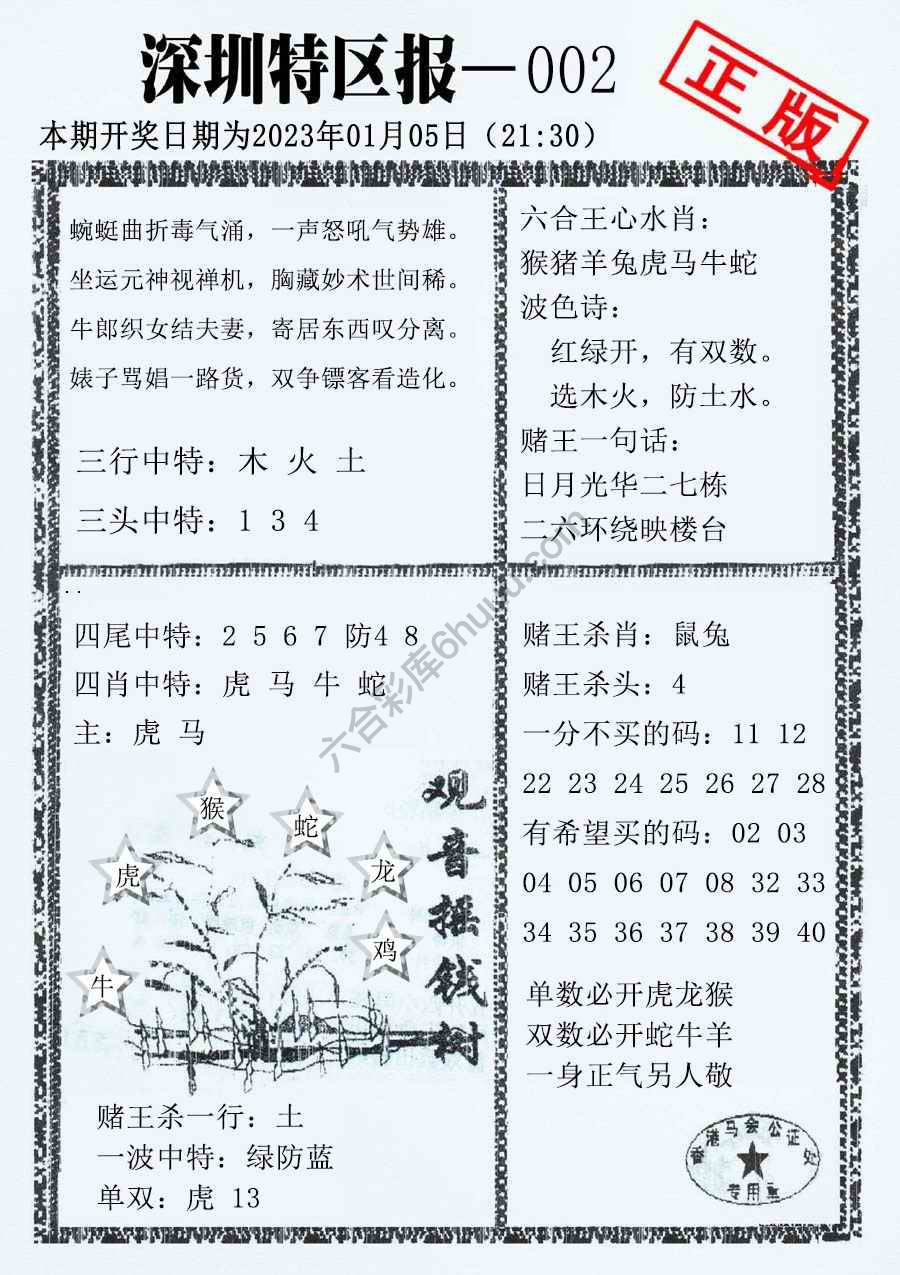 深圳特区报—002
正版
本期开奖日期为2023年01月05日（21:30）
蜿蜓曲折毒气涌，一声怒吼气势雄。
坐运元神视禅机，胸藏妙术世间稀。
牛郎织女结夫妻，寄居东西叹分离。
婊子骂娼一路货，双争镖客看造化。
三行中特：木 火 土
三头中特：1 3 4
六合王心水肖：
猴猪羊兔虎马牛蛇
波色诗：
红绿开，有双数。
选木火，防土水。
赌王一句话：
日月光华二七栋
二六环绕映楼台
四尾中特：2 5 6 7 防4 8
四肖中特：虎 马 牛 蛇
主：虎 马
猴
蛇
虎
龙
鸡
牛
观音摇钱树
赌王杀一行：土
一波中特：绿防蓝
单双：虎 13
赌王杀肖：鼠兔
赌王杀头：4
一分不买的码：11 12
22 23 24 25 26 27 28
有希望买的码：02 03
04 05 06 07 08 32 33
34 35 36 37 38 39 40
单数必开虎龙猴
双数必开蛇牛羊
一身正气另人敬
香港马会公证处
专用章
六合彩库6huku.com